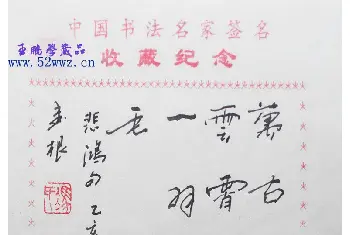 鹏學藏品
www.52wwz.cn
中国书法名家签名
收藏纪念
萬古
雲霄
一羽
毛
悲鴻句 乙亥